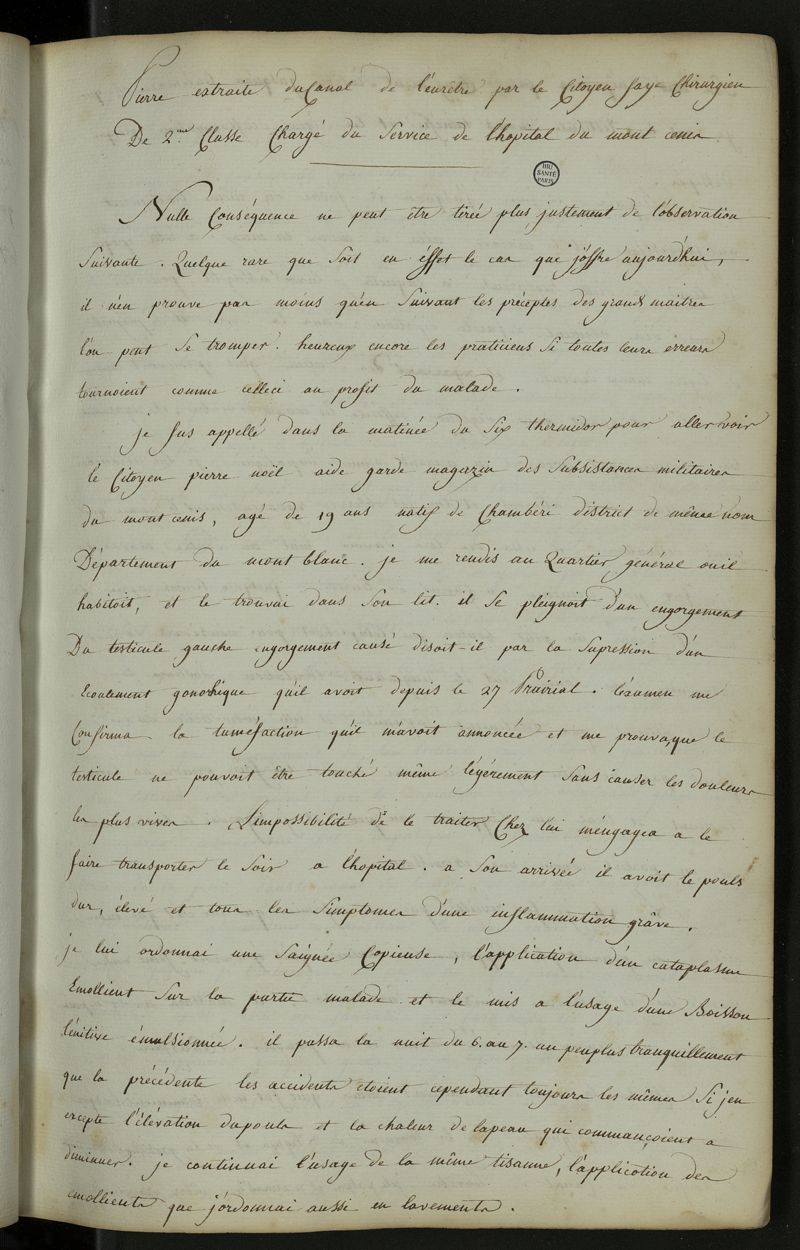 Pierre extraite du Canal de l'éurètre par le Citoyen faye Chirurgien
De 2.me Classe Chargé du Service de l'hopital du mont cenis
BIU
SANTÉ
PARIS
Nulle Conséquence ne peut être tirée plus justement de l'observation
Suivante. Quelque rare que soit en éffet le cas que j'offre aujourd'hui,
il n'en prouve pas moins qu'en Suivant les préceptes des grands maitres
l'on peut se tromper. heureux encore les praticiens Si toutes leurs érreurs
tournoient comme celleci au profit du malade.
je fus appellé dans la matinée du Six thermidor pour aller voir
le Citoyen pierre noël aide garde magazin des Subsistances militaires
du mont cenis, agé de 19 ans natif de Chambéri district de même nom
Département du mont blanc. je me rendis au Quartier général ou il
habitoit, et le trouvai dans Son lit. il Se pleignoit d'un engorgement
Du testicule gauche engorgement causé disoit-il par la Supression d'un
Ecoulement gonorhéique qu'il avoit depuis le 27 Prairial. l'éxamen me
Confirma la tuméfaction qu'il m'avoit annoncée et me prouva, que le
testicule ne pouvoit être touché même légérement Sans causer les douleurs
les plus vives. L'impossibilité de le traiter Chez lui m'engagea a le
faire transporter le Soir a l'hopital. a Son arrivée il avoit le pouls
dur, élevé et tous les Simptomes d'une inflammation grâve.
je lui ordonnai une Saignée Copieuse, l'application d'un cataplasme
Emollient Sur la partie malade et le mis a l'usage d'une Boisson
lénitive émulsionnée. il passa la nuit du 6. au 7. un peu plus tranquillement
que la précédente les accidents etoient cependant toujours les mêmes Si j'en
excepte l'élévation du pouls et la chaleur de la peau qui commançoient a
diminuer. je continuai l'usage de la même tisanne, l'application des
emollients que j'ordonnai aussi en lavements.